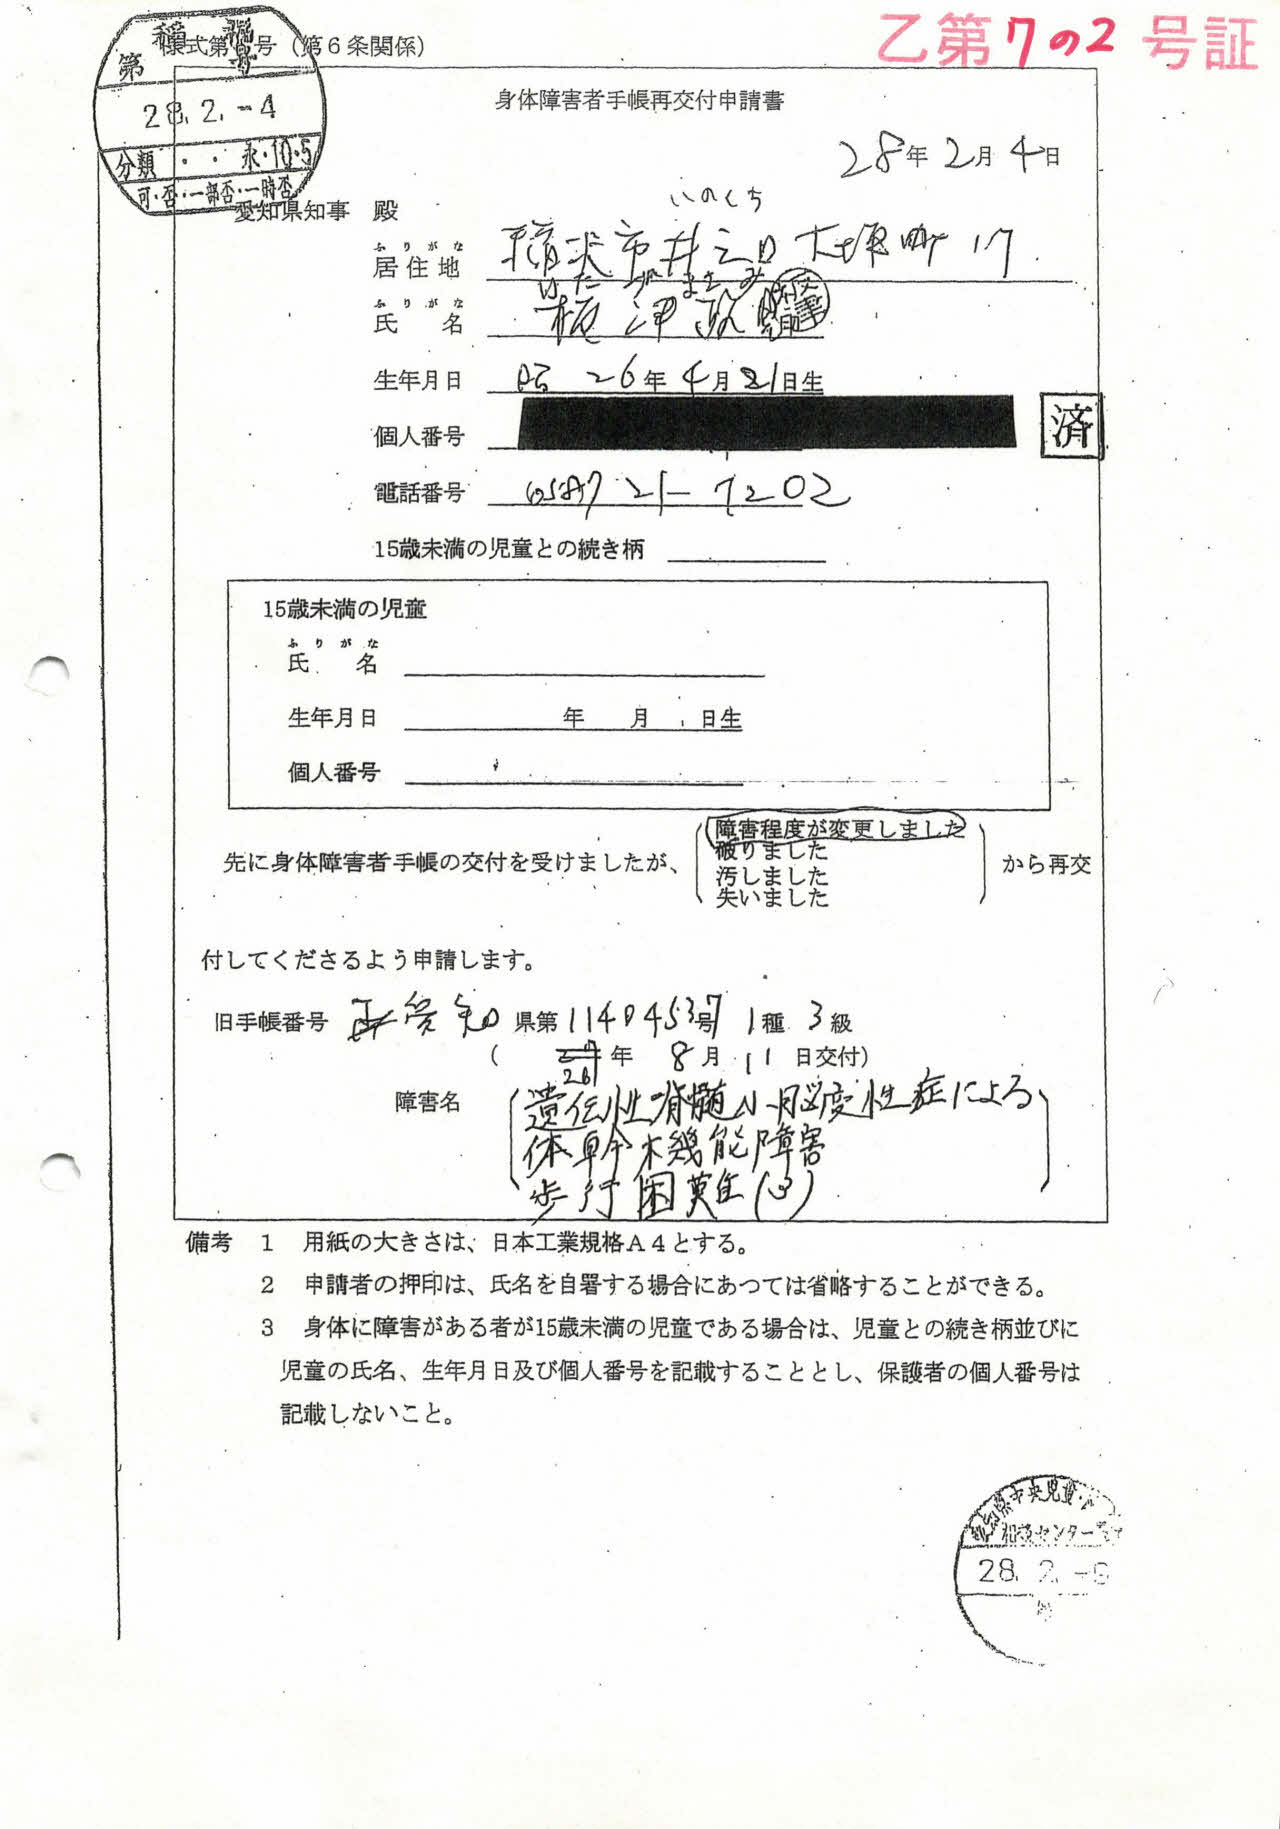 乙第7の2号証
様式第 号（第6条関係）
稲 福
第 号
28.2.-4
分類 ・ ・ 永・10・5
可・否・一部否・一時否
身体障害者手帳再交付申請書
28年2月4日
愛知県知事 殿
いのくち
ふりがな
居住地 稲沢市井之口大坪町17
ふりがな いたづまさみ
氏 名 板津政
生年月日 昭26年4月21日生
個人番号
済
電話番号 0587 21-7202
15歳未満の児童との続き柄
15歳未満の児童
ふりがな
氏 名
生年月日 年 月 日生
個人番号
障害程度が変更しました
破りました
先に身体障害者手帳の交付を受けましたが、 から再交
汚しました
失いました
付してくださるよう申請します。
旧手帳番号 愛知県第1140453号 1種 3級
( 26年 8月 11日交付)
障害名 遺伝性脊髄小脳変性症による
体幹機能障害
歩行困難(3)
備考 1 用紙の大きさは、日本工業規格A4とする。
2 申請者の押印は、氏名を自署する場合にあつては省略することができる。
3 身体に障害がある者が15歳未満の児童である場合は、児童との続き柄並びに
児童の氏名、生年月日及び個人番号を記載することとし、保護者の個人番号は
記載しないこと。
愛知県中央児童・
相談センター
28. 2. -8